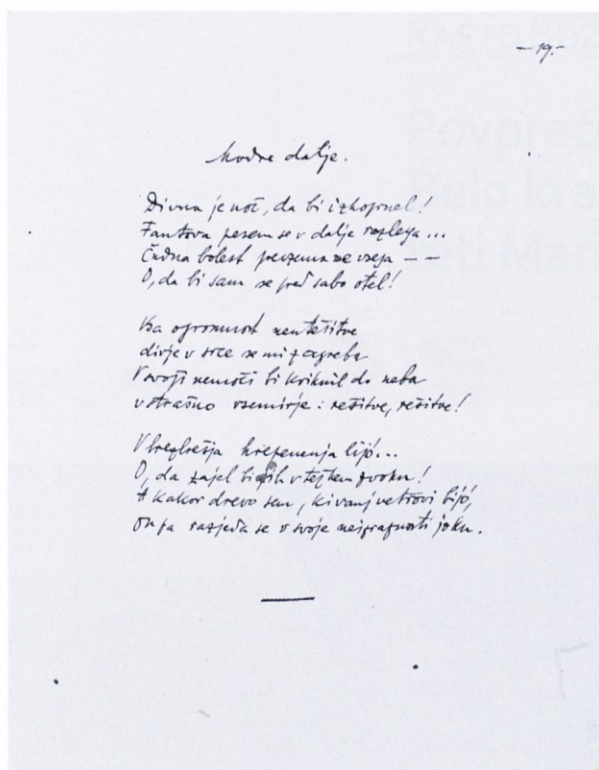 – 19. –
Modre dalje.
Divna je noč, da bi izkoprnel!
Fantova pesem se v dalje razlega...
Čudna bolest prevzema me vsega – –
O, da bi sam se pred sabo otel!
Vsa ogromnost neutešitve
divje v srce se mi zagreba
V svoji nemoči bi kriknil do neba
v strašno vsemirje: rešitve, rešitve!
V brezbrežja hrepenenja lijó...
O, da zajel bi jih v tejkem zvoku!
A kakor drevo sem, ki vanj vetrovi bijó,
on pa razjeda se v svoje neizraznosti joku.
RASTO
Povpreč
Belo kra
teti Mari